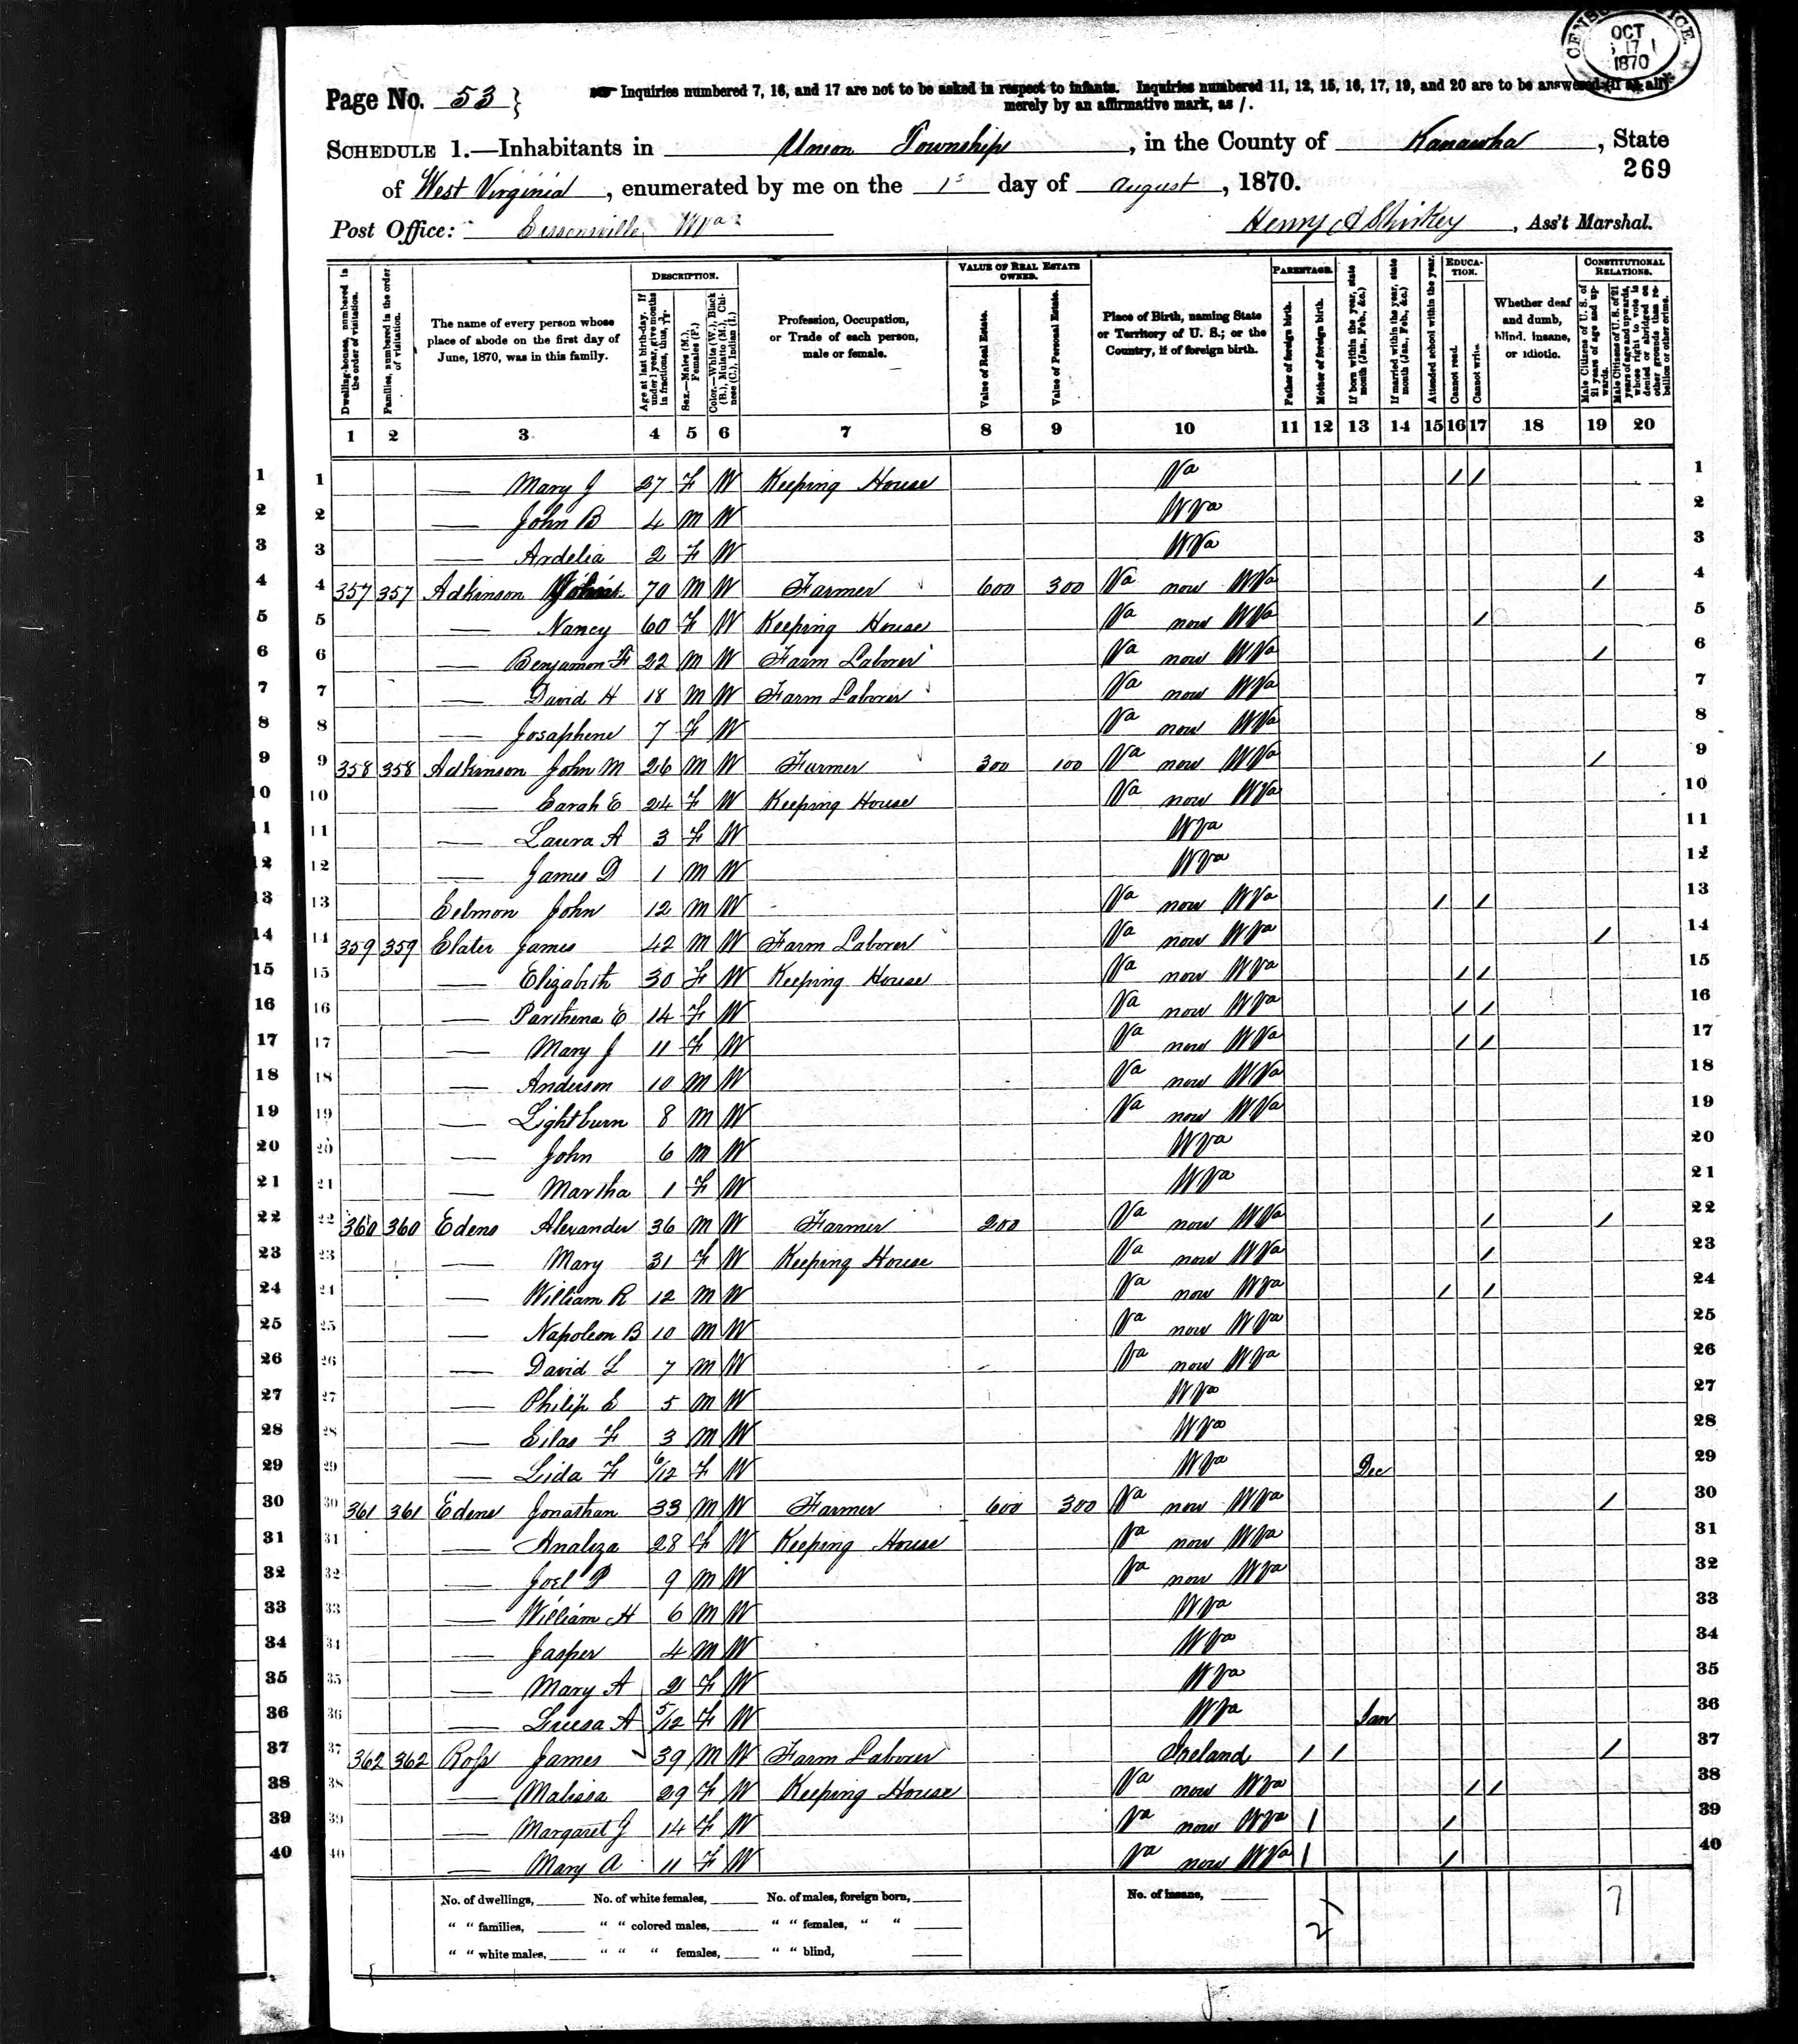 CENSUS OFFICE.
OCT
17
1870
Page No. 53 }
Inquiries numbered 7, 16, and 17 are not to be asked in respect to infants. Inquiries numbered 11, 12, 15, 16, 17, 19, and 20 are to be answered (if at all)
merely by an affirmative mark, as /.
SCHEDULE 1.—Inhabitants in Union Township, in the County of Kanawha, State
269
of West Virginia, enumerated by me on the 1s day of August, 1870.
Post Office: WVa
Henry A Shirkey, Ass't Marshal.
DESCRIPTION.
VALUE OF REAL ESTATE OWNED.
PARENTAGE.
EDUCATION.
CONSTITUTIONAL RELATIONS.
Dwelling-houses, numbered in the order of visitation.
Families, numbered in the order of visitation.
The name of every person whose place of abode on the first day of June, 1870, was in this family.
Age at last birth-day. If under 1 year, give months in fractions, thus, 3/12.
Sex.—Males (M.), Females (F.)
Color.—White (W.), Black (B.), Mulatto (M.), Chinese (C.), Indian (I.)
Profession, Occupation, or Trade of each person, male or female.
Value of Real Estate.
Value of Personal Estate.
Place of Birth, naming State or Territory of U. S.; or the Country, if of foreign birth.
Father of foreign birth.
Mother of foreign birth.
If born within the year, state month (Jan., Feb., &c.)
If married within the year, state month (Jan., Feb., &c.)
Attended school within the year.
Cannot read.
Cannot write.
Whether deaf and dumb, blind, insane, or idiotic.
Male Citizens of U. S. of 21 years of age and upwards.
Male Citizens of U. S. of 21 years of age and upwards, whose right to vote is denied or abridged on other grounds than rebellion or other crime.
1 2 3 4 5 6 7 8 9 10 11 12 13 14 15 16 17 18 19 20
1 1 — Mary J 27 F W Keeping House Va / / 1
2 2 — John B 4 M W WVa 2
3 3 — Ardelia 2 F W WVa 3
4 4 357 357 Adkinson 70 M W Farmer 600 300 Va now WVa / 4
5 5 — Nancy 60 F W Keeping House Va now WVa / 5
6 6 — Benjamon F 22 M W Farm Laborer Va now WVa / 6
7 7 — David H 18 M W Farm Laborer Va now WVa 7
8 8 — Josaphene 7 F W Va now WVa 8
9 9 358 358 Adkinson John M 26 M W Farmer 300 100 Va now WVa / 9
10 10 — Sarah E 24 F W Keeping House Va now WVa 10
11 11 — Laura A 3 F W WVa 11
12 12 — James D 1 M W WVa 12
13 13 John 12 M W Va now WVa / / 13
14 14 359 359 Slater James 42 M W Farm Laborer Va now WVa / 14
15 15 — Elizabeth 30 F W Keeping House Va now WVa / / 15
16 16 — Parthena E 14 F W Va now WVa / / 16
17 17 — Mary J 11 F W Va now WVa / / 17
18 18 — Anderson 10 M W Va now WVa 18
19 19 — Lightburn 8 M W Va now WVa 19
20 20 — John 6 M W WVa 20
21 21 — Martha 1 F W WVa 21
22 22 360 360 Edens Alexander 36 M W Farmer 200 Va now WVa / / 22
23 23 — Mary 31 F W Keeping House Va now WVa / 23
24 24 — William R 12 M W Va now WVa / / 24
25 25 — Napoleon B 10 M W Va now WVa 25
26 26 — David L 7 M W Va now WVa 26
27 27 — Philip S 5 M W WVa 27
28 28 — Silas F 3 M W WVa 28
29 29 — Lida F 6/12 F W WVa Dec 29
30 30 361 361 Edens Jonathan 33 M W Farmer 600 300 Va now WVa / 30
31 31 — Analiza 28 F W Keeping House Va now WVa 31
32 32 — Joel P 9 M W Va now WVa 32
33 33 — William H 6 M W WVa 33
34 34 — Jasper 4 M W WVa 34
35 35 — Mary A 2 F W WVa 35
36 36 — A 5/12 F W WVa Jan 36
37 37 362 362 Ross James 39 M W Farm Laborer Ireland / / / 37
38 38 — Malissa 29 F W Keeping House Va now WVa / / 38
39 39 — Margaret J 14 F W Va now WVa / / 39
40 40 — Mary A 11 F W Va now WVa / / 40
No. of dwellings, No. of white females, No. of males, foreign born, No. of insane,
" " families, " " colored males, " " females, " "
" " white males, " " " females, " " blind,
2 7